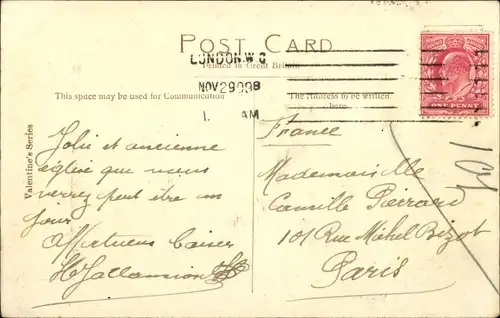 POST CARD
Printed in Great Britain
LONDON.W.C
NOV 29 09 8
1. AM
This space may be used for Communication
The Address to be written
here.
ONE PENNY
Valentine's Series
Jolie et ancienne
église que nous
verrez peut être un
jour
Affectueux baiser
France
Mademoiselle
Camille Pierrard
101 Rue Michel Bizot
Paris
101